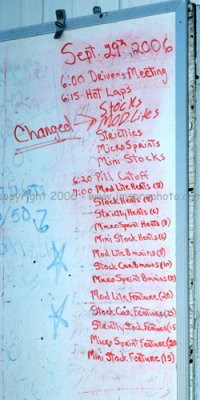 Sept. 29th, 2006
6:00 Drivers Meeting
6:15 Hot Laps
Stocks
Changed MOD Lites
Strictlies
Micro Sprints
Mini Stocks
6:20 Pill Cutoff
7:00 Mod Lite Heats (8)
Stock Heats (8)
Strictly Heats (8)
Micro Sprint Heats (8)
Mini Stock Heats (6)
Mod Lite B mains (8)
Stock Car B mains (10)
Micro Sprint B mains (8)
Mod Lite Feature (20)
Stock Car Feature (25)
Strictly Stock Feature (15
Micro Sprint Feature (20
Mini Stock Feature (15)